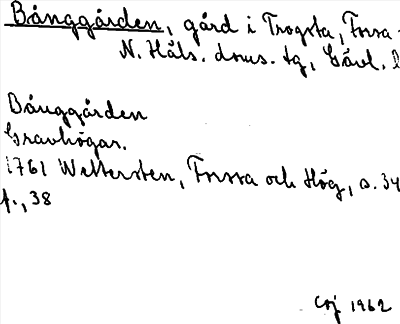 Bånggården, gård i Trogsta, Forsa
N. Häls. doms. tg, Gävl. l
Bånggården
Gravhögar.
1761 Wettersten, Forssa och Hög, s. 34
f., 38
1962